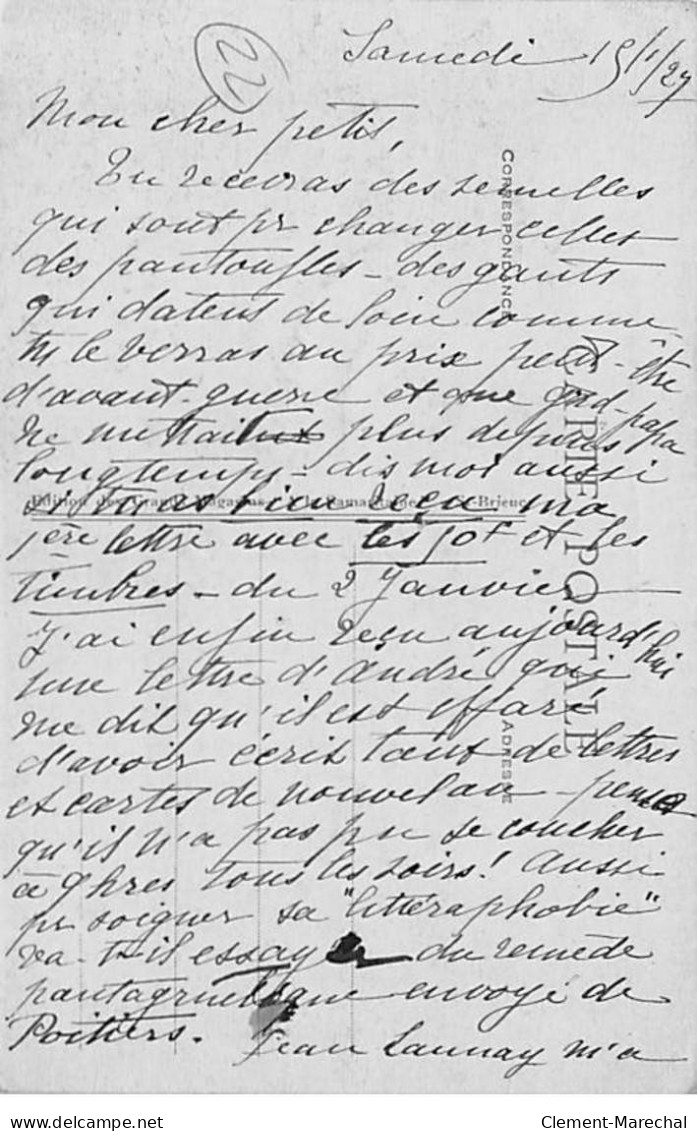 22
Samedi 15/1/27
Mon cher petit,
Tu recevras des semelles
qui sont pr changer celles
des pantoufles - des gants
qui datent de loin comme
tu le verras au prix peut-être
d'avant-guerre et que grd-papa
ne mettait plus depuis
longtemps - dis moi aussi
si tu as bien reçu ma
1ère lettre avec les 50f et les
timbres - du 2 Janvier
J'ai enfin reçu aujourd'hui
une lettre d'André qui
me dit qu'il est effaré
d'avoir écrit tant de lettres
et cartes de nouvel an - pense
qu'il n'a pas pu se coucher
à 9hres tous les soirs! Aussi
pr soigner sa "litteraphobie"
va-t-il essayer du remède
pantagruelique envoyé de
Poitiers. Jean Launay m'a
CORRESPONDANCE
CARTE POSTALE
ADRESSE
Edition des Grands Magasins A la Samaritaine St-Brieuc
delcampe.net
Clement-Marechal